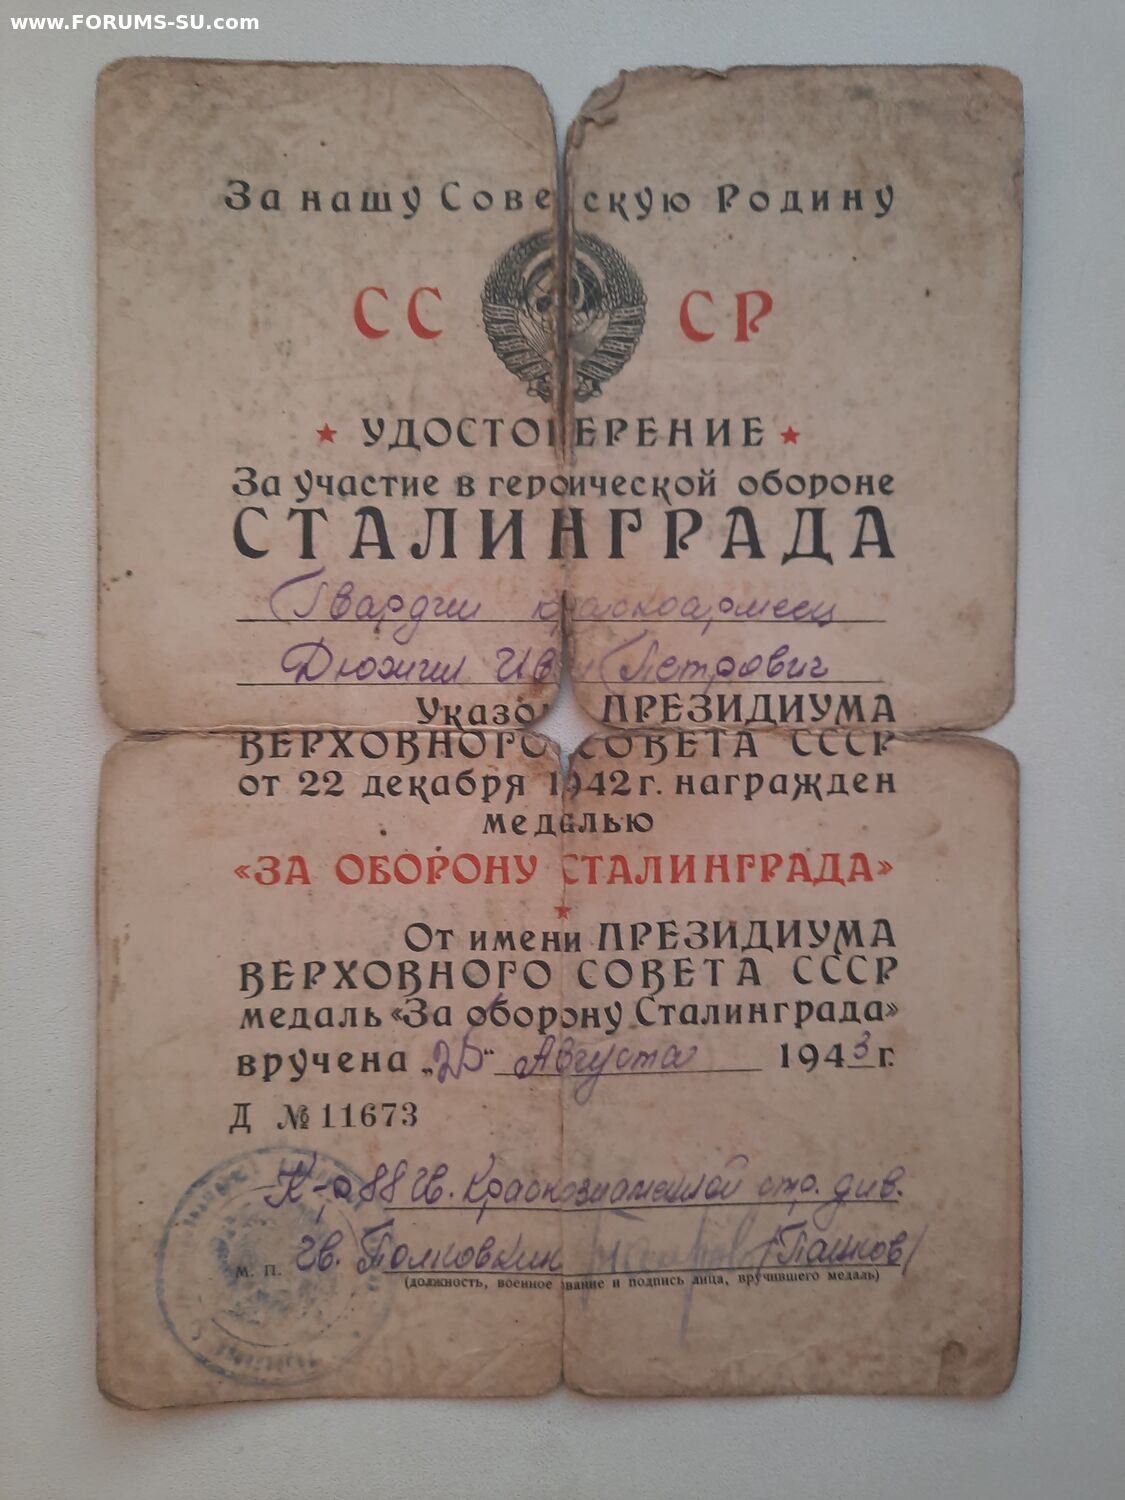 www.FORUMS-SU.com
За нашу Советскую Родину
СС СР
УДОСТОВЕРЕНИЕ
За участие в героической обороне
СТАЛИНГРАДА
Гвардии красноармеец
Дюжин Иван Петрович
Указом ПРЕЗИДИУМА
ВЕРХОВНОГО СОВЕТА СССР
от 22 декабря 1942 г. награжден
медалью
«ЗА ОБОРОНУ СТАЛИНГРАДА»
От имени ПРЕЗИДИУМА
ВЕРХОВНОГО СОВЕТА СССР
медаль «За оборону Сталинграда»
вручена „25“ Августа 1943 г.
Д № 11673
К-р 88 Гв. Краснознаменной стр. див.
М. П. Гв. Полковник (Панков)
(должность, военное звание и подпись лица, вручившего медаль)